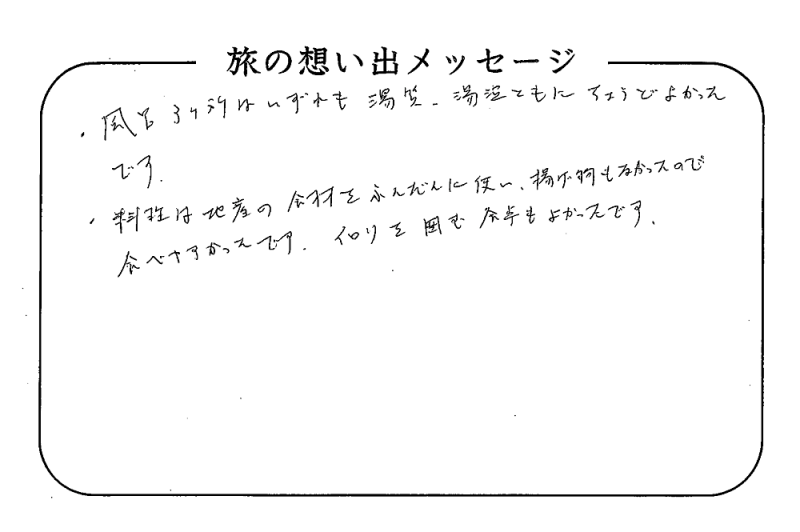 旅の想い出メッセージ
・風呂3ヶ所はいずれも湯質、湯温ともにちょうどよかった
です。
・料理は地産の食材をふんだんに使い、揚げ物もなかったので
食べやすかったです。イロリを囲む食卓もよかったです。